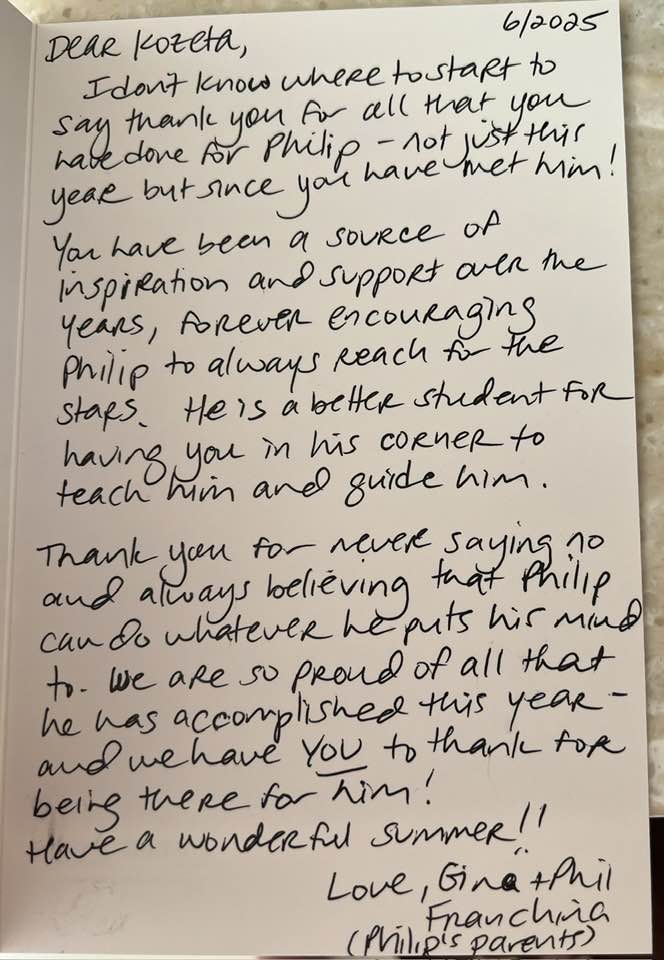 6/2025
Dear Kozeta,
I don't know where to start to
say thank you for all that you
have done for Philip - not just this
year but since you have met him!
You have been a source of
inspiration and support over the
years, forever encouraging
Philip to always reach for the
stars. He is a better student for
having you in his corner to
teach him and guide him.
Thank you for never saying no
and always believing that Philip
can do whatever he puts his mind
to. We are so proud of all that
he has accomplished this year -
and we have YOU to thank for
being there for him!
Have a wonderful summer!!
Love, Gina + Phil
Franchina
(Philip's parents)